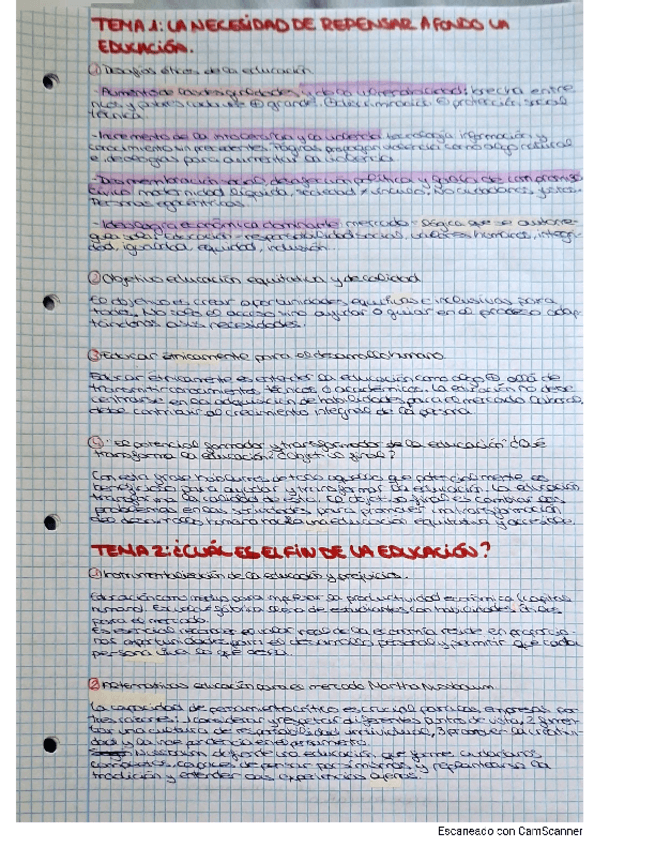 TEMA 1: LA NECESIDAD DE REPENSAR A FONDO LA
EDUCACIÓN.
① Desafíos éticos de la educación
- Aumento de las desigualdades y de la vulnerabilidad: brecha entre
ricos y pobres cada vez ⊕ grande. ⊕ discriminación ⊕ protección social
- Incremento de la intolerancia y la violencia tecnología información y
conocimiento sin precedentes. Páginas propagan violencia como algo natural
e ideologías para aumentar la violencia
- Desmembración social, desafección política y de compromiso
cívico modernidad líquida, sociedad ≠ vínculo. No ciudadanos
Personas egocéntricas.
- Ideología económica dominante mercado lógica que se
Educación responsabilidad social, valores humanos,
igualdad, equidad, inclusión.
② Objetivo educación equitativa y de calidad
El objetivo es crear oportunidades equitativas e inclusivas para
todos. No solo el acceso sino ayudar o guiar en el proceso
a sus necesidades.
③ Educar éticamente para el desarrollo humano
Educar éticamente es entender la educación como algo ⊕ allá de
transmitir conocimientos técnicos o académicos. La educación no debe
centrarse en la adquisición de habilidades para el mercado laboral,
debe contribuir al crecimiento integral de la persona
④ "El potencial formador y transformador de la educación" ¿Qué
transforma la educación? ¿Objetivo final?
Con esta frase hablamos de todo aquello que potencialmente es
para ayudar y transformar la educación. La educación
transforma la calidad de esta. El objetivo final es cambiar los
problemas en las sociedades para promover
desarrollo humano hacia una educación equitativa y accesible.
TEMA 2: ¿CUÁL ES EL FIN DE LA EDUCACIÓN?
① Instrumentalización de la educación y prejuicios.
Educación como medio para mejorar la productividad económica (capital
humano). Escuela fábrica de estudiantes con habilidades útiles
para el mercado.
Es esencial el valor real de la economía reside en
oportunidades para el desarrollo personal y permitir que cada
persona viva lo que desea.
② educación para el mercado Martha Nussbaum
La capacidad de pensamiento crítico es crucial para las empresas por
tres valores: 1 considerar y respetar diferentes puntos de vista, 2
una cultura de responsabilidad individual, 3 promover la
y la independencia en el pensamiento.
Nussbaum defiende la educación, que forme ciudadanos
capaces de pensar por sí mismos, y replantearse la
tradición y entender las experiencias ajenas.
Escaneado con CamScanner